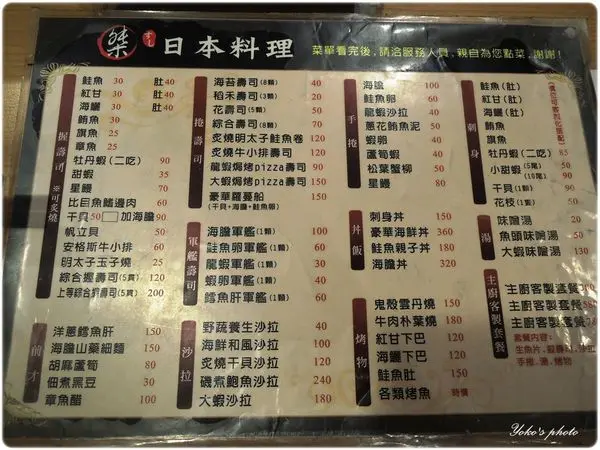 樂
すし
日本料理
菜單看完後,請洽服務人員,親自為您點菜,謝謝!
握壽司
※可炙燒
鮭魚 30 肚40
紅甘 30 肚40
海鱺 30 肚40
鮪魚 30
旗魚 25
章魚 25
牡丹蝦(二吃) 90
甜蝦 35
星鰻 70
比目魚鰭邊肉 60
干貝50 加海膽90
帆立貝 50
安格斯牛小排 60
明太子玉子燒 25
綜合握壽司(5貫) 120
上等綜合握壽司(5貫) 200
捲壽司
海苔壽司(8顆) 40
稻禾壽司(2顆) 40
花壽司(5顆) 50
綜合壽司(8顆) 70
炙燒明太子鮭魚卷 120
炙燒牛小排壽司 120
龍蝦焗烤pizza壽司 90
大蝦焗烤pizza壽司 90
豪華羅蔓船
(干貝+海膽+鮭魚卵)
軍艦壽司
海膽軍艦(1顆) 100
鮭魚卵軍艦(1顆) 60
龍蝦軍艦(1顆) 30
蝦卵軍艦(1顆) 40
鱈魚肝軍艦(1顆) 60
手捲
海膽 100
鮭魚卵 60
龍蝦沙拉 40
蔥花鮪魚泥 50
蝦卵 40
蘆筍蝦 40
松葉蟹柳 50
星鰻 80
刺身
(價位可客制化搭配)
鮭魚(肚)
紅甘(肚)
海鱺(肚)
鮪魚
旗魚
牡丹蝦(二吃) 85
小甜蝦(5尾) 50
(10尾) 90
干貝(1顆) 50
花枝(1隻)
丼飯
刺身丼 150
豪華海鮮丼 360
鮭魚親子丼 180
海膽丼 320
湯
味噌湯
魚頭味噌湯
大蝦味噌湯
主廚客製套餐
主廚客製套餐
主廚客製套餐
主廚客製套餐
套餐內容:
生魚片,握壽司,沙拉
手捲,湯,烤物
前才
洋蔥鱈魚肝 150
海膽山藥細麵 150
胡麻蘆筍 80
佃煮黑豆 30
章魚醋 100
沙拉
野蔬養生沙拉 40
海鮮和風沙拉 100
炙燒干貝沙拉 120
磯煮鮑魚沙拉 240
大蝦沙拉 180
烤物
鬼殼雲丹燒 150
牛肉朴葉燒 180
紅甘下巴 120
海鱺下巴 120
鮭魚肚 150
各類烤魚 時價
Yoko's photo